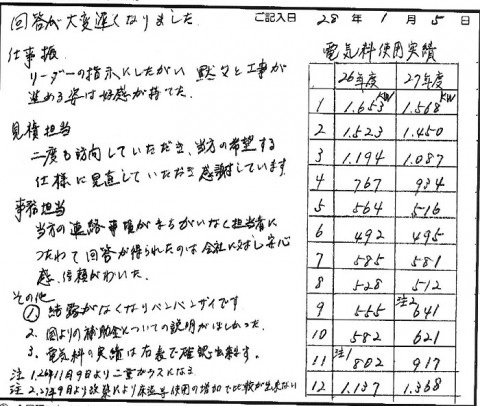 回答が大変遅くなりました
ご記入日 28年1月5日
仕事振
リーダーの指示にしたがい 黙々と工事が
進める姿は好感が持てた。
見積担当
二度も訪問していただき、当方の希望する
仕様に見直していただき感謝しています
事務担当
当方の連絡事項がまちがいなく担当者に
つたわって回答が得られたのは会社に対し安心
感、信頼がわいた。
その他
①. 結露がなくなりバンバンザイです
2. 国よりの補助金についての説明がほしかった。
3. 電気料の実績は右表で確認出来ます。
注1.26年11月9日より二重ガラスになる
注2.27年9月より改築により床暖等使用の増加で比較が出来ない
電気料使用実績
26年度 27年度
1 1.653KW 1.568KW
2 1.523 1.450
3 1.194 1.087
4 767 934
5 564 516
6 492 495
7 585 581
8 528 512
9 555 注2 641
10 582 621
11 注1 802 917
12 1.137 1.368